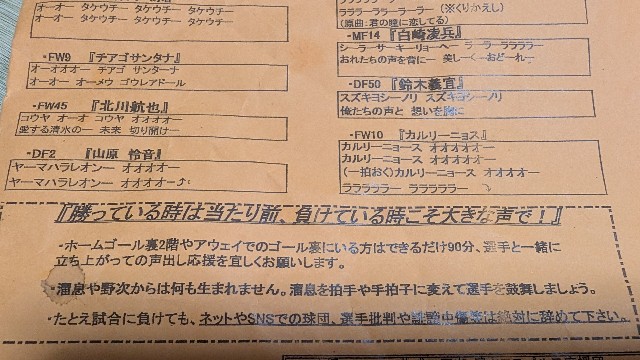 オーオー タケウチー タケウチー タケウチー
・FW9 『チアゴサンタナ』
オーオオオー チアゴ サンターナ
オーオー オーメウ ゴウレアドール
・FW45 『北川航也』
コウヤ オーオ コウヤ オオオオー
愛する清水の一 未来 切り開け一
・DF2 『山原 怜音』
ヤーマハラレオンー オオオオー
ヤーマハラレオンー オオオオー♪
ラララーララーラーラー (※くりかえし)
(原曲:君の瞳に恋してる)
・MF14 『白崎凌兵』
シーラーサーキーリョーヘー ラーララララー
おれたちの声を背に一 美し一く一おどーれ一
・DF50 『鈴木義宜』
スズキヨシーノリ スズキヨシーノリ
俺たちの声と 想いを胸に
・FW10 『カルリーニョス』
カルリーニョス オオオオオー
カルリーニョス オオオオオー
(一拍おく)カルリーニョス オオオオー
ララララララー ララララララー
『勝っている時は当たり前、負けている時こそ大きな声で!』
・ホームゴール裏2階やアウェイでのゴール裏にいる方はできるだけ90分、選手と一緒に
立ち上がっての声出し応援を宜しくお願いします。
・溜息や野次からは何も生まれません。溜息を拍手や手拍子に変えて選手を鼓舞しましょう。
・たとえ試合に負けても、ネットやSNSでの球団、選手批判や誹謗中傷等は絶対に辞めて下さい。